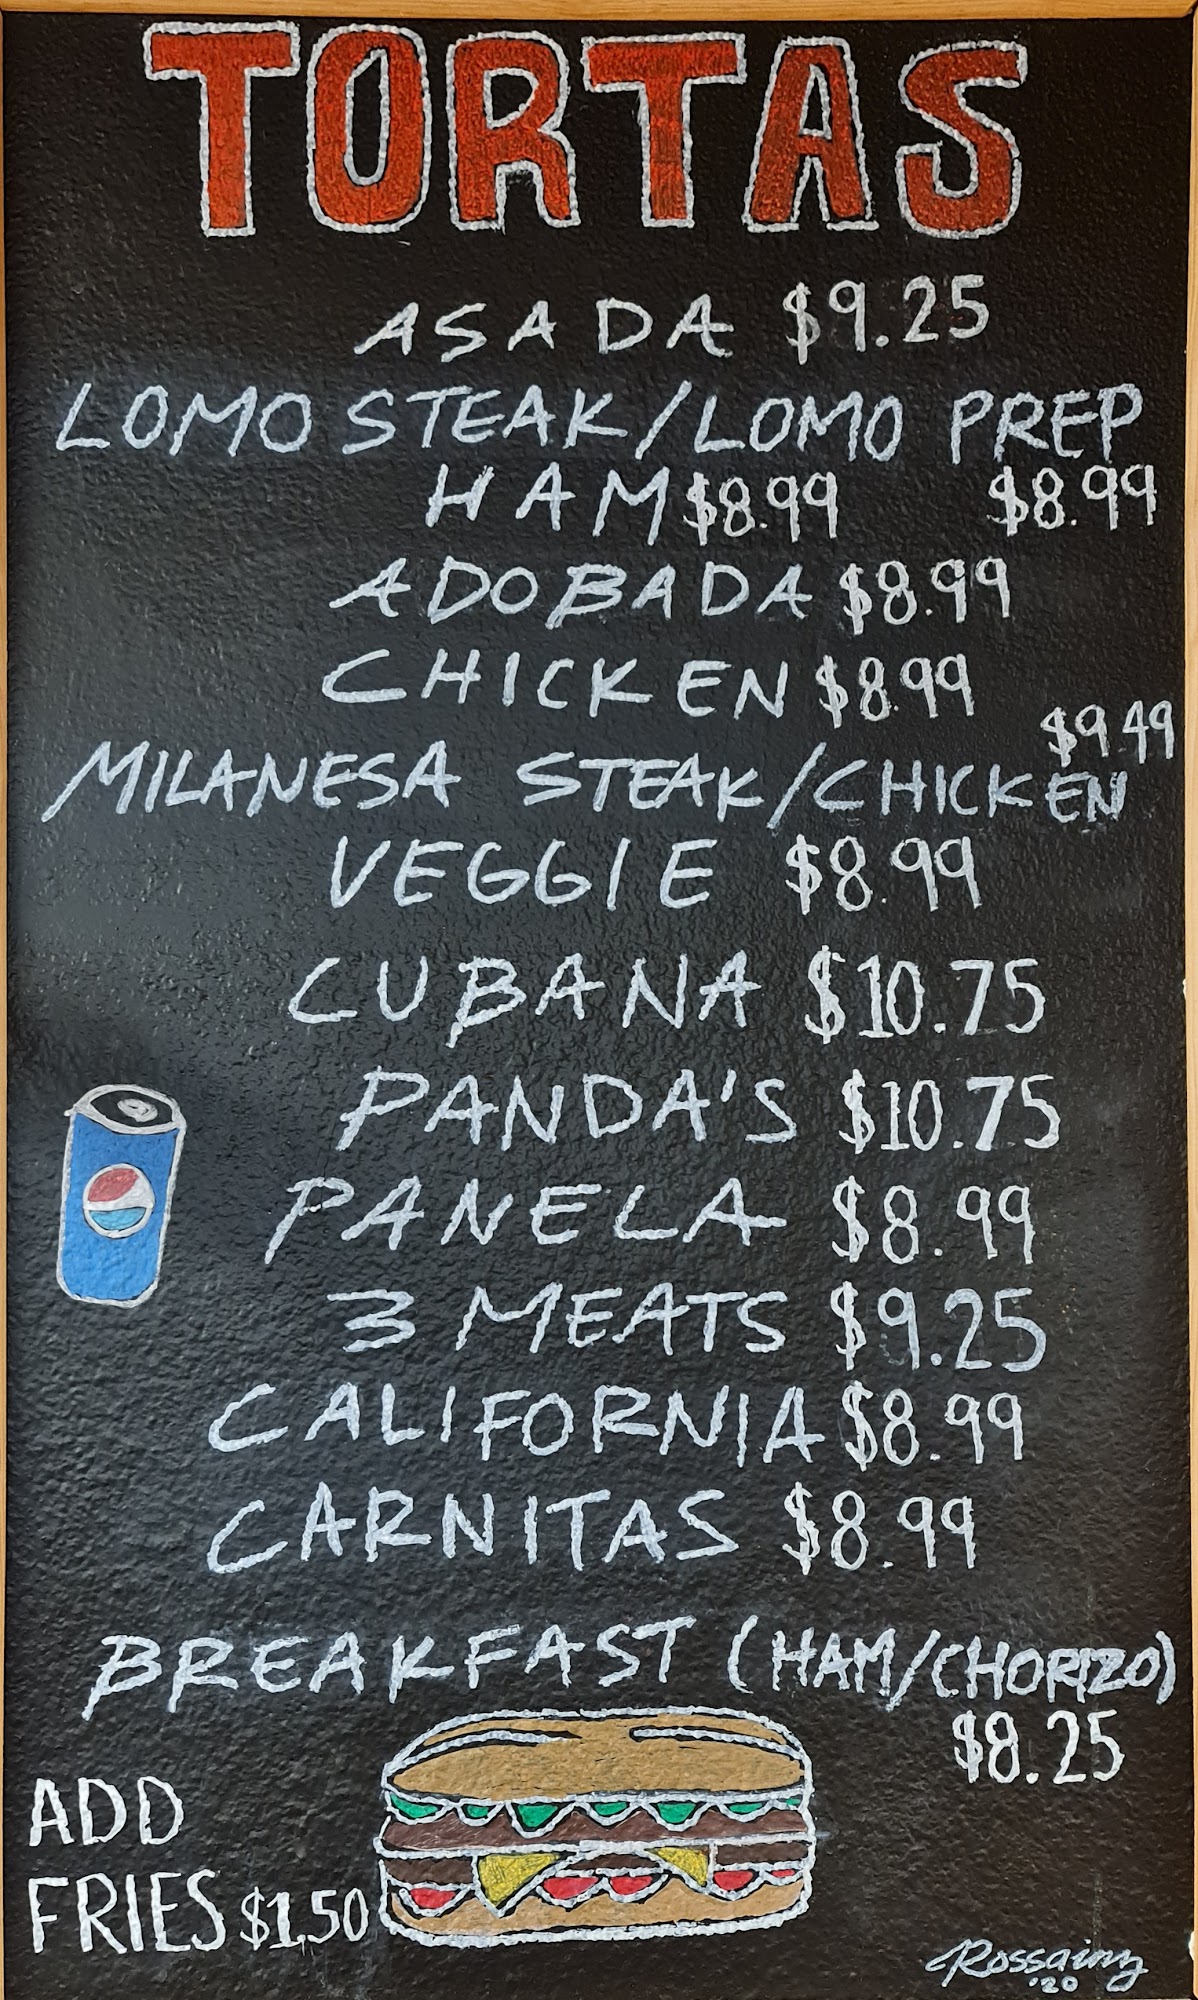 TORTAS
ASADA $9.25
LOMO STEAK/LOMO PREP
HAM $8.99 $8.99
ADOBADA $8.99
CHICKEN $8.99
$9.49
MILANESA STEAK/CHICKEN
VEGGIE $8.99
CUBANA $10.75
PANDA'S $10.75
PANELA $8.99
3 MEATS $9.25
CALIFORNIA $8.99
CARNITAS $8.99
BREAKFAST (HAM/CHORIZO)
$8.25
ADD
FRIES $1.50
Rossainz
'20